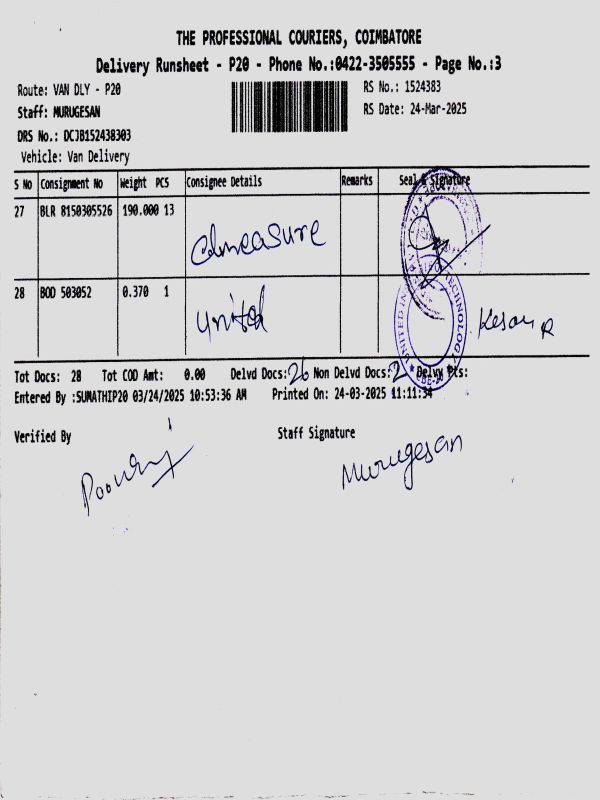 THE PROFESSIONAL COURIERS, COIMBATORE
Delivery Runsheet - P20 - Phone No.:0422-3505555 - Page No.:3
Route: VAN DLY - P20
RS No.: 1524383
Staff: MURUGESAN
RS Date: 24-Mar-2025
DRS No.: DCJB152438303
Vehicle: Van Delivery
S No Consignment No Weight PCS Consignee Details Remarks Seal & Signature
27 BLR 8150305526 190.000 13
28 BOD 503052 0.370 1 United
UNITED IN TECHNOLOGY
Kesav R
Tot Docs: 28 Tot COD Amt: 0.00 Delvd Docs: 26 Non Delvd Docs: 2 Delvy Pts:
Entered By :SUMATHIP20 03/24/2025 10:53:36 AM Printed On: 24-03-2025 11:11:34
Verified By Staff Signature
Murugesan